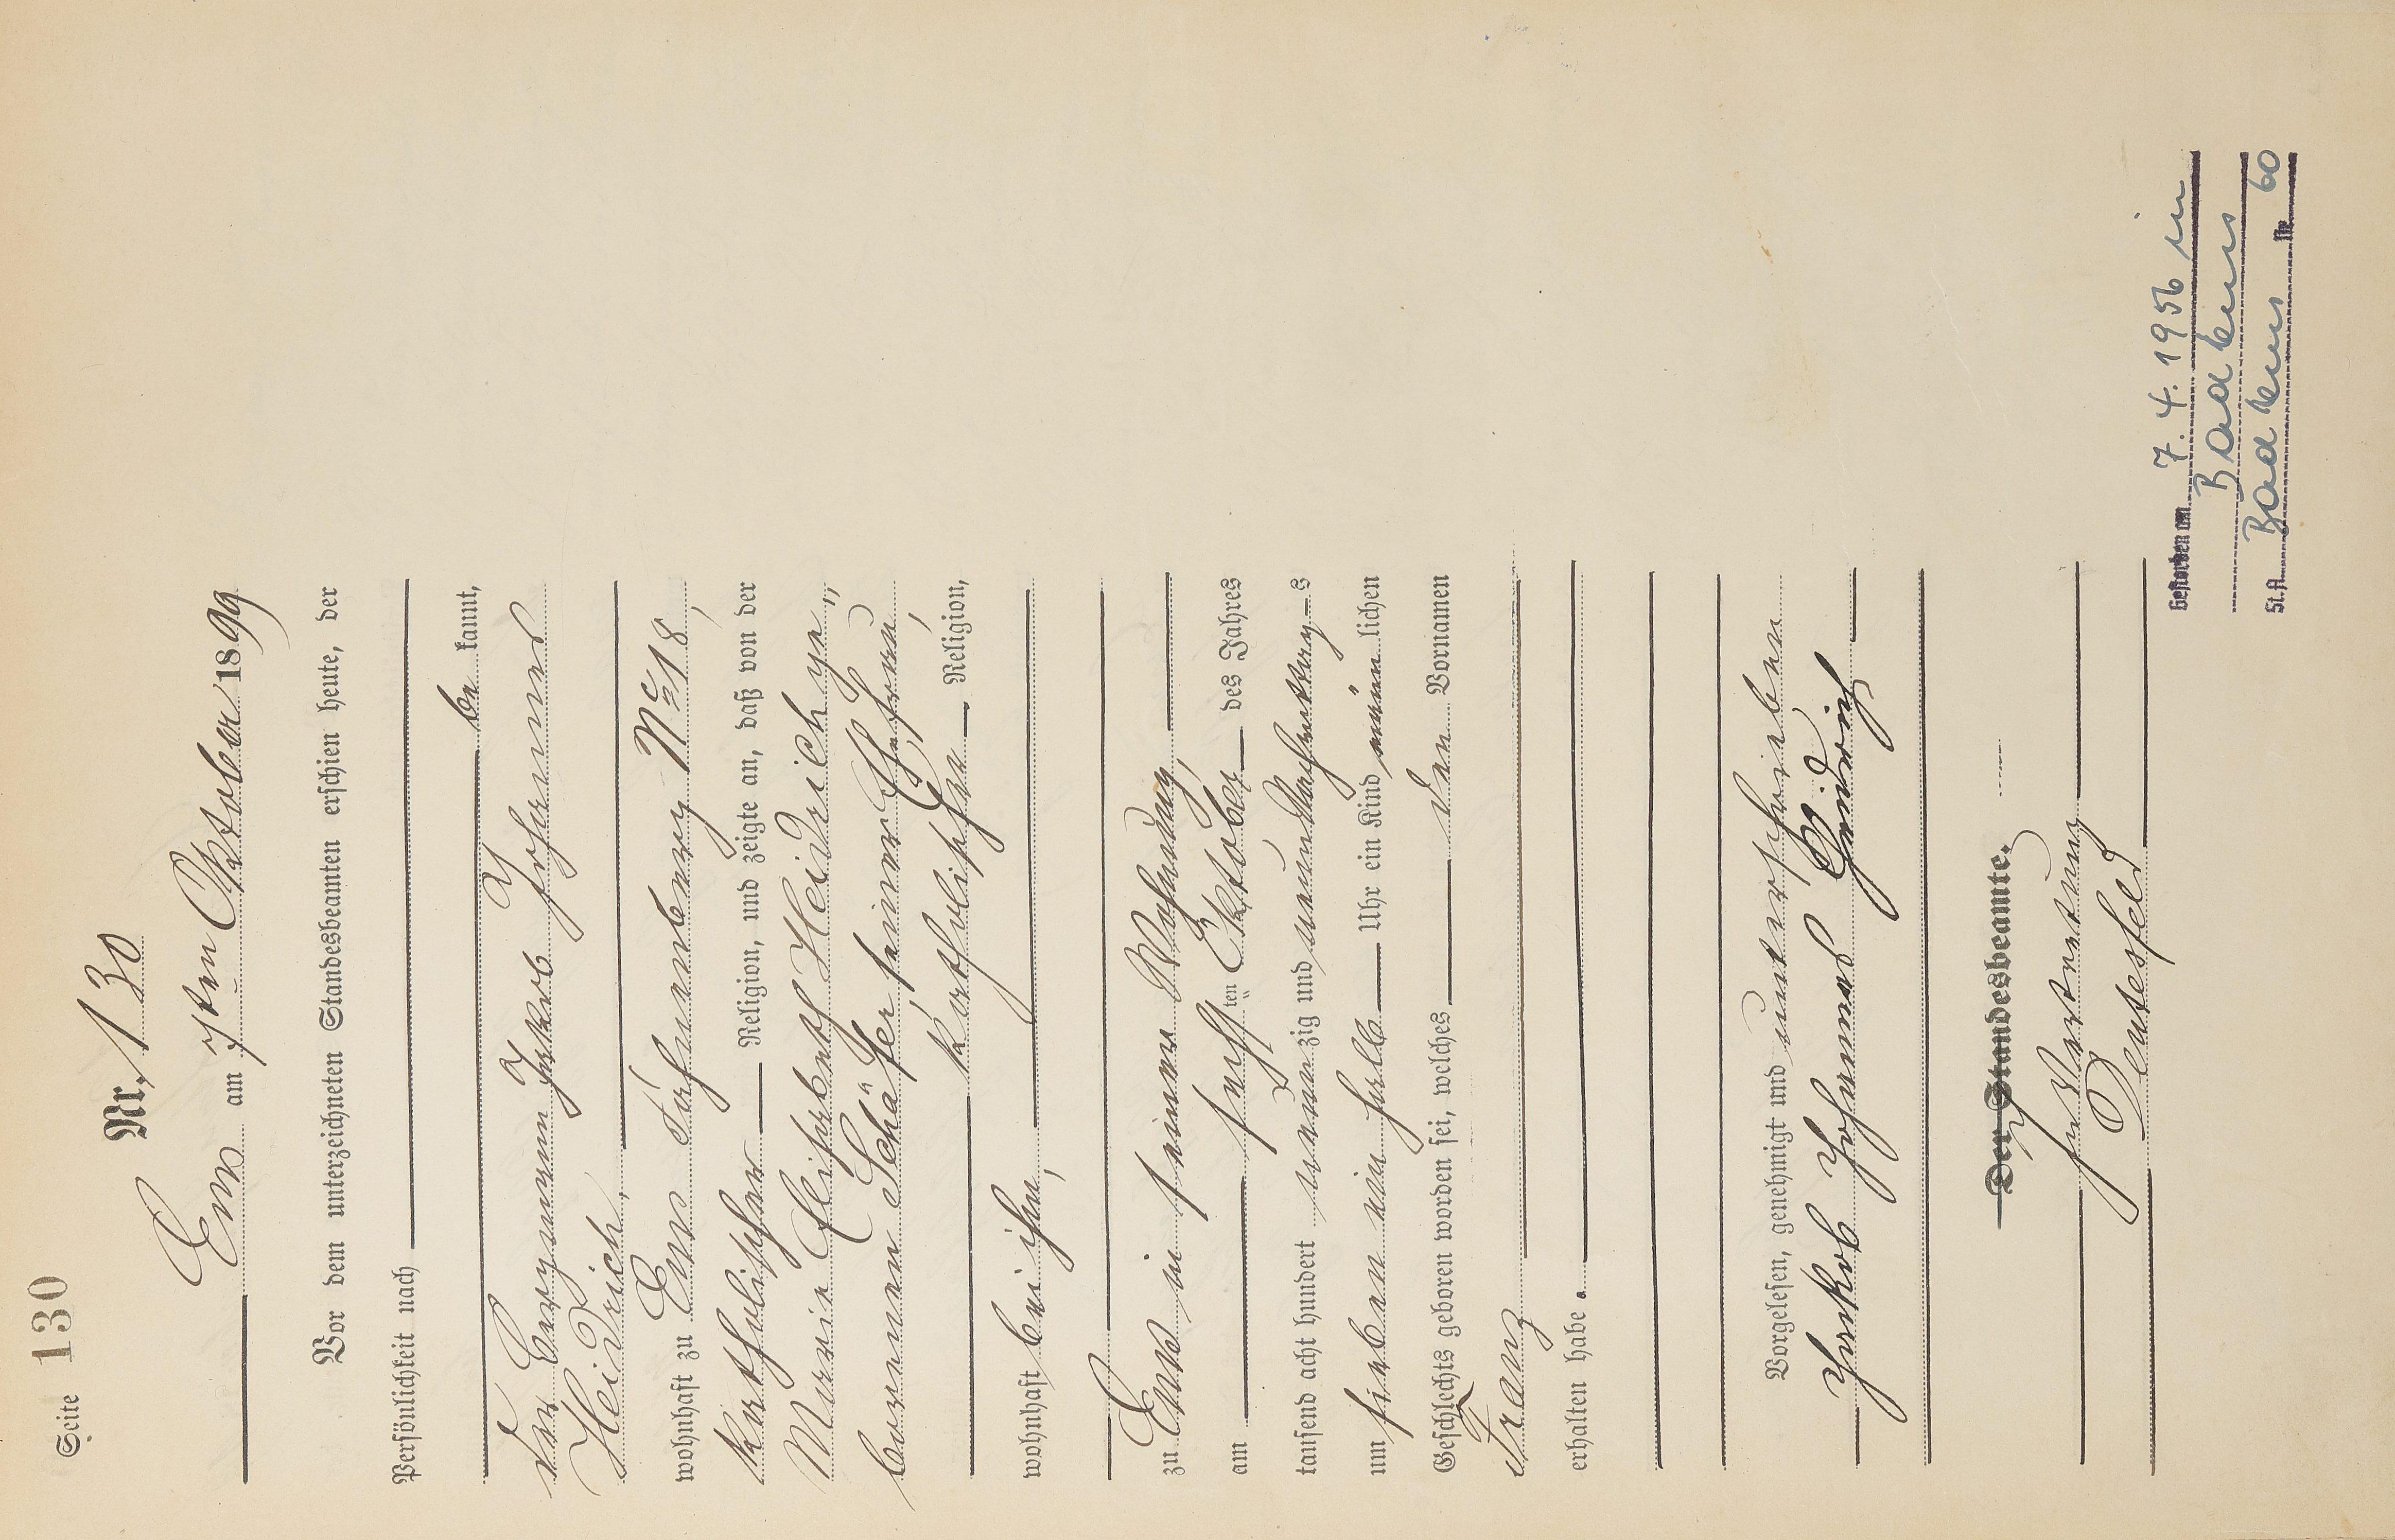 Seite 130
Nr. 130
Ems am 7ten Oktober 1899
Vor dem unterzeichneten Standesbeamten erschien heute, der
Persönlichkeit nach
be kannt,
der Bergmann Jakob Johannes
Heidrich,
wohnhaft zu Ems Nº 18,
katholischer Religion, und zeigte an, daß von der
Maria Elisabeth Heidrich ge„
borenen Schäfer, seiner Ehefrau,
katholischer Religion,
wohnhaft bei ihm,
zu Ems in seiner Wohnung,
am sechsten Oktober des Jahres
tausend acht hundert neunzig und neun Nachmittags
um sieben ein halb Uhr ein Kind männlichen
Geschlechts geboren worden sei, welches den Vornamen
Franz
erhalten habe.
Vorgelesen, genehmigt und unterschrieben
Jakob Johannes Heidrich
Der Standesbeamte.
In Vertretung
Gestorben am 7. 4. 1956 in
Bad Ems
St.A. Bad Ems Nr. 60